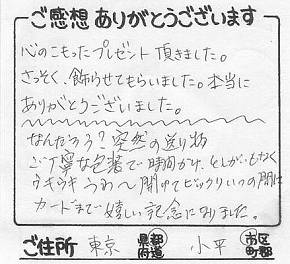 ご感想ありがとうございます
心のこもったプレゼント頂きました。
さっそく、飾らせてもらいました。本当に
ありがとうございました。
なんだろう？突然の送り物
ご丁寧な包装で時間かけ
ウキウキうわ〜開けてビックリいつの間に
カードまで嬉しい記念になりました。
ご住所 東京 都道府県 小平 市区町郡